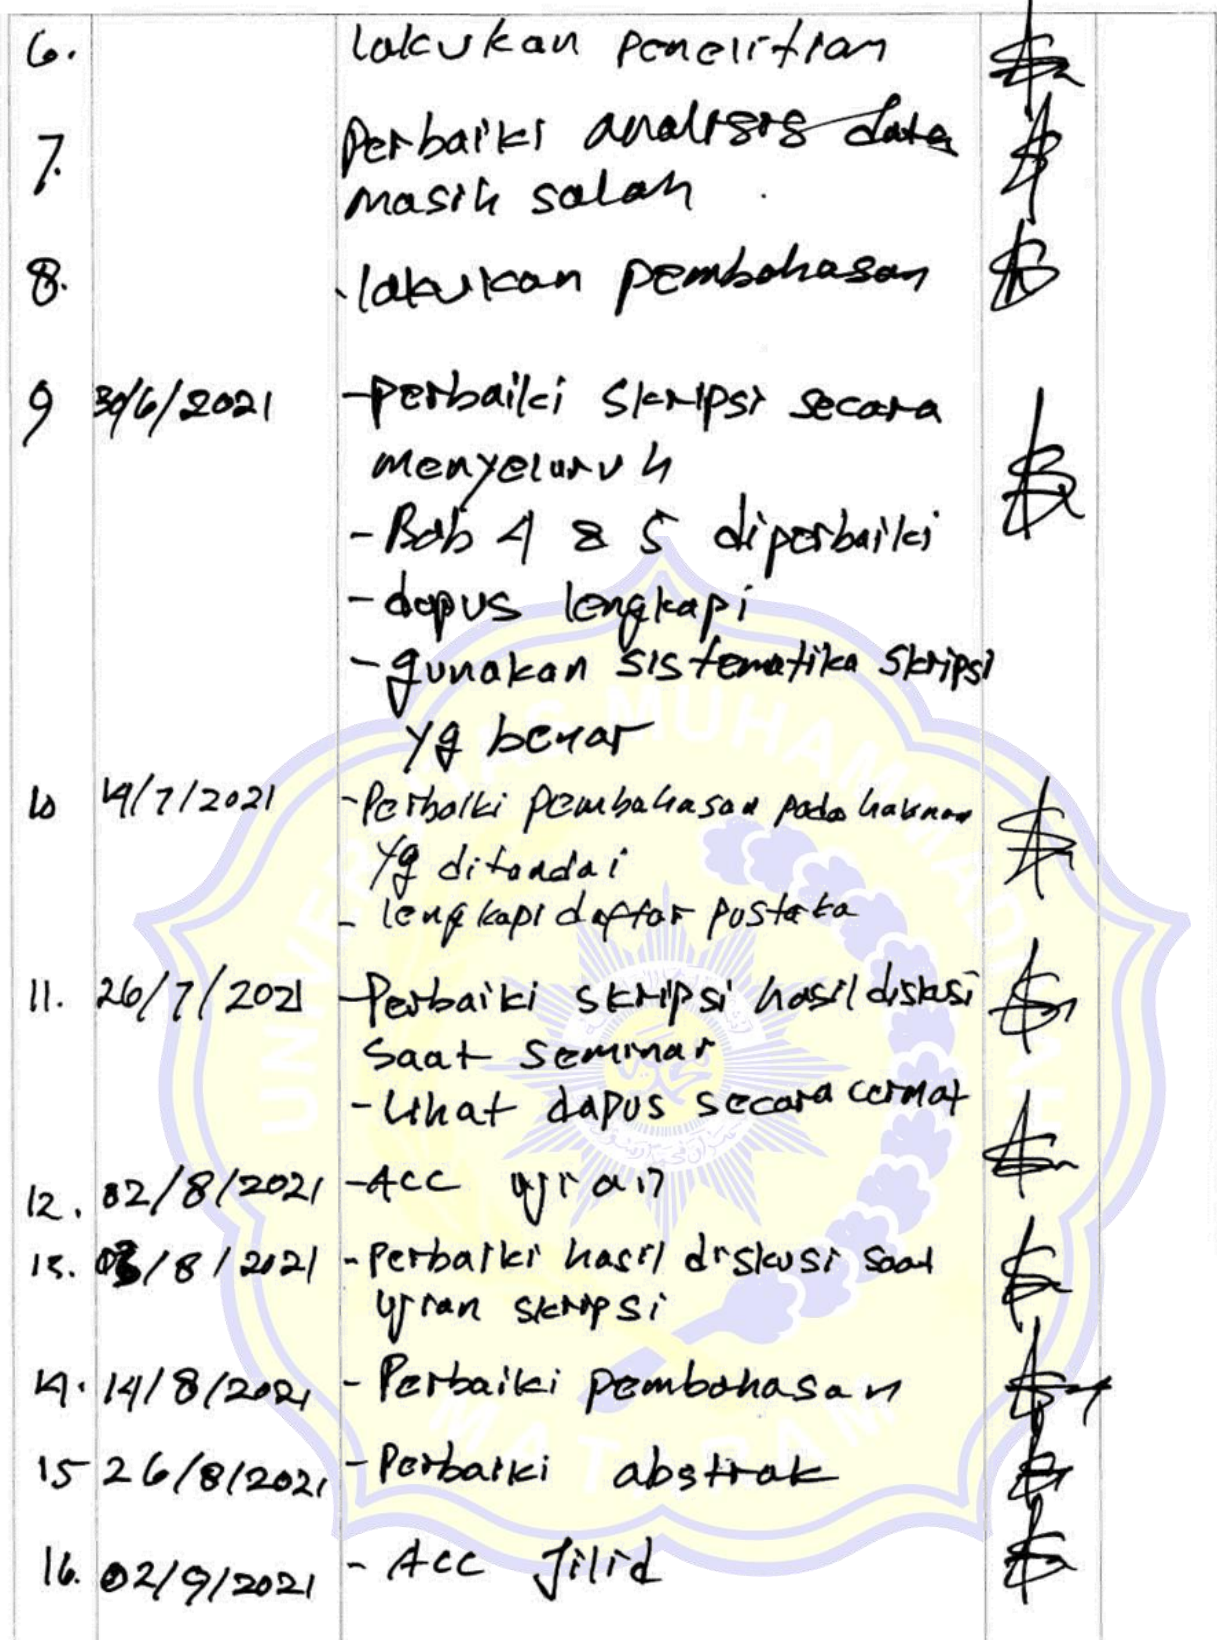 6. lakukan penelitian
7. Perbaiki analisis data
masih salah.
8. - lakukan pembahasan
9 30/6/2021 - perbaiki skripsi secara
menyeluruh
- Bab 4 & 5 diperbaiki
- dapus lengkapi
- gunakan sistematika skripsi
yg benar
10 14/7/2021 - Perbaiki pembahasan pada halaman
yg ditandai
- lengkapi daftar pustaka
11. 26/7/2021 - Perbaiki skripsi hasil diskusi
saat seminar
- Lihat dapus secara cermat
12. 02/8/2021 - ACC ujian
13. 03/8/2021 - Perbaiki hasil diskusi saat
ujian skripsi
14. 14/8/2021 - Perbaiki pembahasan
15 26/8/2021 - Perbaiki abstrak
16. 02/9/2021 - Acc Jilid
UNIVERSITAS MUHAMMADIYAH
MATARAM